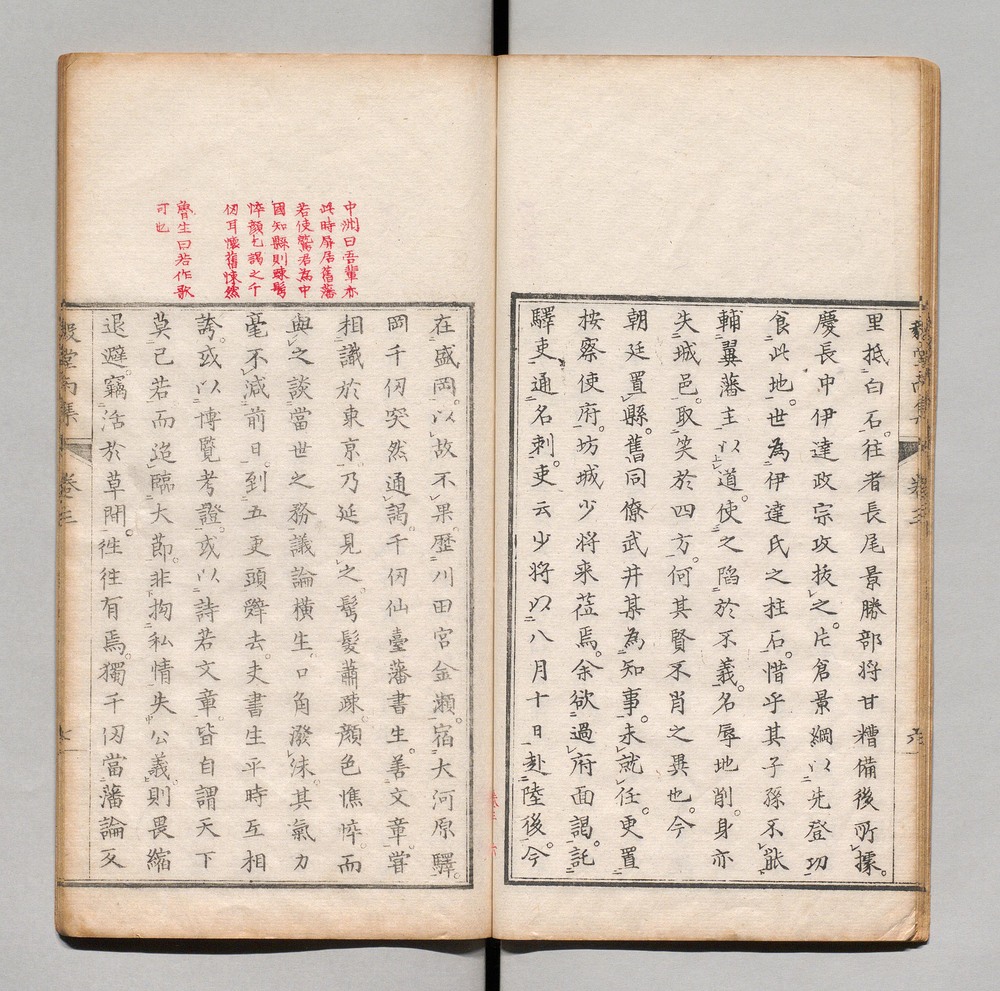 里抵白石往者長尾景勝部将甘糟備後所據
慶長中伊達政宗攻抜之片倉景綱以先登功
食此地世為伊達氏之柱石惜乎其子孫不能
輔翼藩主以道使之陷於不義名辱地削身亦
失城邑取笑於四方何其賢不肖之異也今
朝廷置縣舊同僚武井某為知事未就任更置
按察使府坊城少将来莅焉余欲過府面謁託
驛吏通名刺吏云少将以八月十日赴陸後今
在盛岡以故不果歴川田宮金瀬宿大河原驛
岡千仞突然通謁千仞仙臺藩書生善文章甞
相識於東京乃延見之鬂髮蕭疎顔色憔悴而
與之談當世之務議論横生口角潑沫其氣力
毫不减前日到五更頭辤去夫書生平時互相
誇或以博覧考證或以詩若文章皆自謂天下
莫已若而迨臨大節非拘私情失公義則畏縮
退避竊活於草間徃徃有焉獨千仞當藩論反
中洲曰吾輩亦
此時屏居舊藩
若使鷲君為中
國知縣則疎鬂
悴顔乞謁之千
仞耳懐舊悚然
魯生曰若作歌
可也
毅堂丙集
卷三
六
毅堂丙集
卷三
七